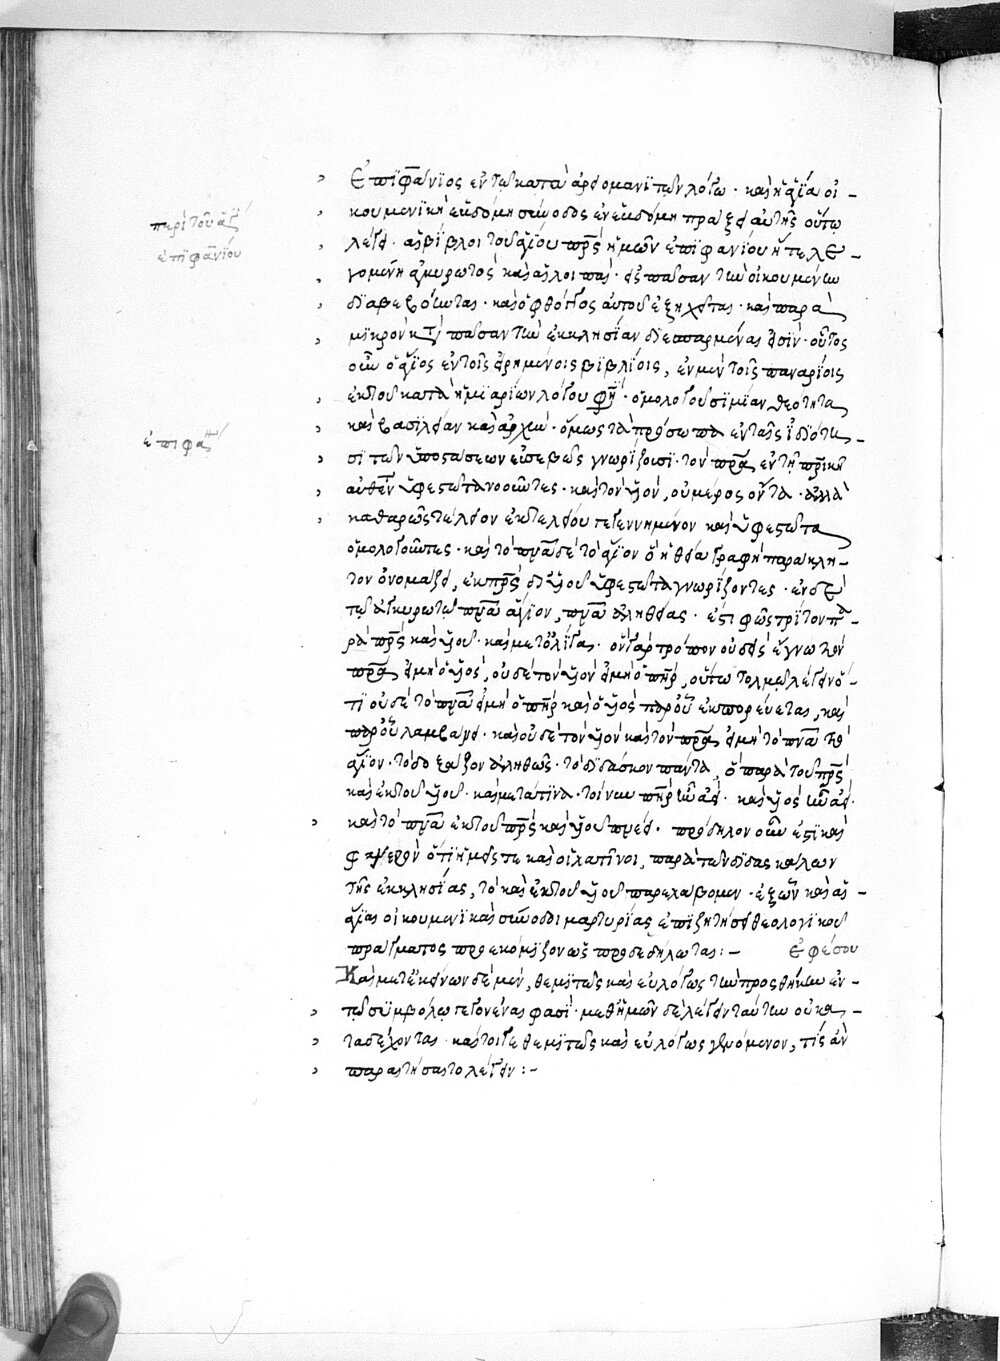 περὶ τοῦ ἁγ
ἐπιφανίου
ἐπιφα
Ἐπϊφάνϊος ἐν τῷ κατὰ ἀρδομανϊτῶν λόγω· καὶ ἡ ἁγία οἰ-
κουμενϊκὴ ἑβδόμη σύνοδος ἐν ἑβδόμη πράξει αὐτῆς οὕτω
λέγει· αἱ βίβλοι τοῦ ἁγίου πρς ἡμῶν ἐπϊφανίου ἥτε λε-
γομένη ἀγκυρωτὸς καὶ αἱ λοιπαὶ· εἰς πᾶσαν τὴν οἰκουμένην
διαβεβόηνται· καὶ ὁ φθόγγος αὐτοῦ ἐξηχεῖται· καὶ παρὰ
μϊκρὸν κατὰ πᾶσαν τὴν ἐκκλησίαν διεσπαρμέναι εἰσὶν· οὗτος
οὖν ὁ ἅγϊος ἐν τοῖς εἰρημένοις βϊβλίοις, ἐν μὲν τοῖς παναρίοις
ἐκ τοῦ κατὰ ἡμϊαρίων λόγου φησὶ· ὁμολογοῦσϊ μίαν θεότητα
καὶ βασϊλείαν καὶ ἀρχὴν· ὅμως τὰ πρόσωπα ἐν ταῖς ἰδϊότη-
σϊ τῶν ὑποστάσεων εὐσεβῶς γνωρίζουσϊ· τὸν πρα ἐν τῇ πρικῇ
αὐθεν ὑφεστῶτα νοοῦντες· καὶ τὸν υἱὸν, οὐ μέρος ὄντα· ἀλλὰ
καθαρῶς τέλειον ἐκ τελείου γεγεννημένον καὶ ὑφεστῶτα
ὁμολογοῦντες· καὶ τὸ πνα δὲ τὸ ἅγιον ὃ ἡ θεία γραφὴ παράκλη-
τον ὀνομάζει, ἐκ πρς δι' υἱοῦ ὑφεστῶτα γνωρίζοντες· ἐν δὲ
τῷ ἀγκυρωτῷ πνα ἅγιον, πνα ἀληθείας· ἐστὶ φῶς τρίτον πα-
ρὰ πρς καὶ υἱοῦ· καὶ μετ' ὀλίγα· ὃν γὰρ τρόπον οὐδεὶς ἔγνω τὸν
πρα εἰ μὴ ὁ υἱὸς, οὐδὲ τὸν υἱὸν εἰ μὴ ὁ πηρ, οὕτω τολμῶ λέγειν ὅ-
τι οὐδὲ τὸ πνα εἰ μὴ ὁ πηρ καὶ ὁ υἱὸς παρ' οὗ ἐκπορεύεται, καὶ
παρ' οὗ λαμβάνει· καὶ οὐδὲ τὸν υἱὸν καὶ τὸν πρα εἰ μὴ τὸ πνα τὸ
ἅγιον· τὸ δοξάζον ἀληθῶς· τὸ διδάσκον πάντα, ὃ παρὰ τοῦ πρς
καὶ ἐκ τοῦ υἱοῦ· καὶ μετά τϊνα· τοίνυν πηρ ἦν ἀεὶ· καὶ υἱὸς ἦν ἀεὶ·
καὶ τὸ πνα ἐκ τοῦ πρς καὶ υἱοῦ πνέει· πρόδηλον οὖν ἐστϊ καὶ
φανερὸν ὅτϊ ἡμεῖς τε καὶ οἱ λατῖνοι, παρὰ τῶν διδασκάλων
τῆς ἐκκλησίας, τὸ καὶ ἐκ τοῦ υἱοῦ παρελάβομεν· ἐξ ὧν καὶ αἱ
ἅγϊαι οἰκουμενϊκαὶ σύνοδοι μαρτυρίας ἐπϊζητήσει θεολογϊκοῦ
πράγματος προεκόμϊζον ὡς προδεδήλωται:- ἐφέσου
Καὶ μετ' ἐκείνων δὲ μὲν, θεμϊτῶς καὶ εὐλόγως τὴν προσθήκην ἐν-
τῷ συμβόλω γεγονέναι φασὶ· μεθ' ἡμῶν δὲ λέγειν ταύτην οὐ κα-
ταδέχονται· καίτοιγε θεμϊτῶς καὶ εὐλόγως γενόμενον, τίς ἂν
παραιτήσαιτο λέγειν:-